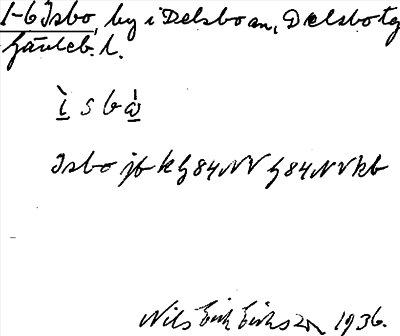 1-6 Isbo, by i Delsbo an, Delsbo tg
Gävleb. l.
ì s b ẁ
Isbo jfk G84NV G84NVkb
Nils Erik Eriksson 1936.